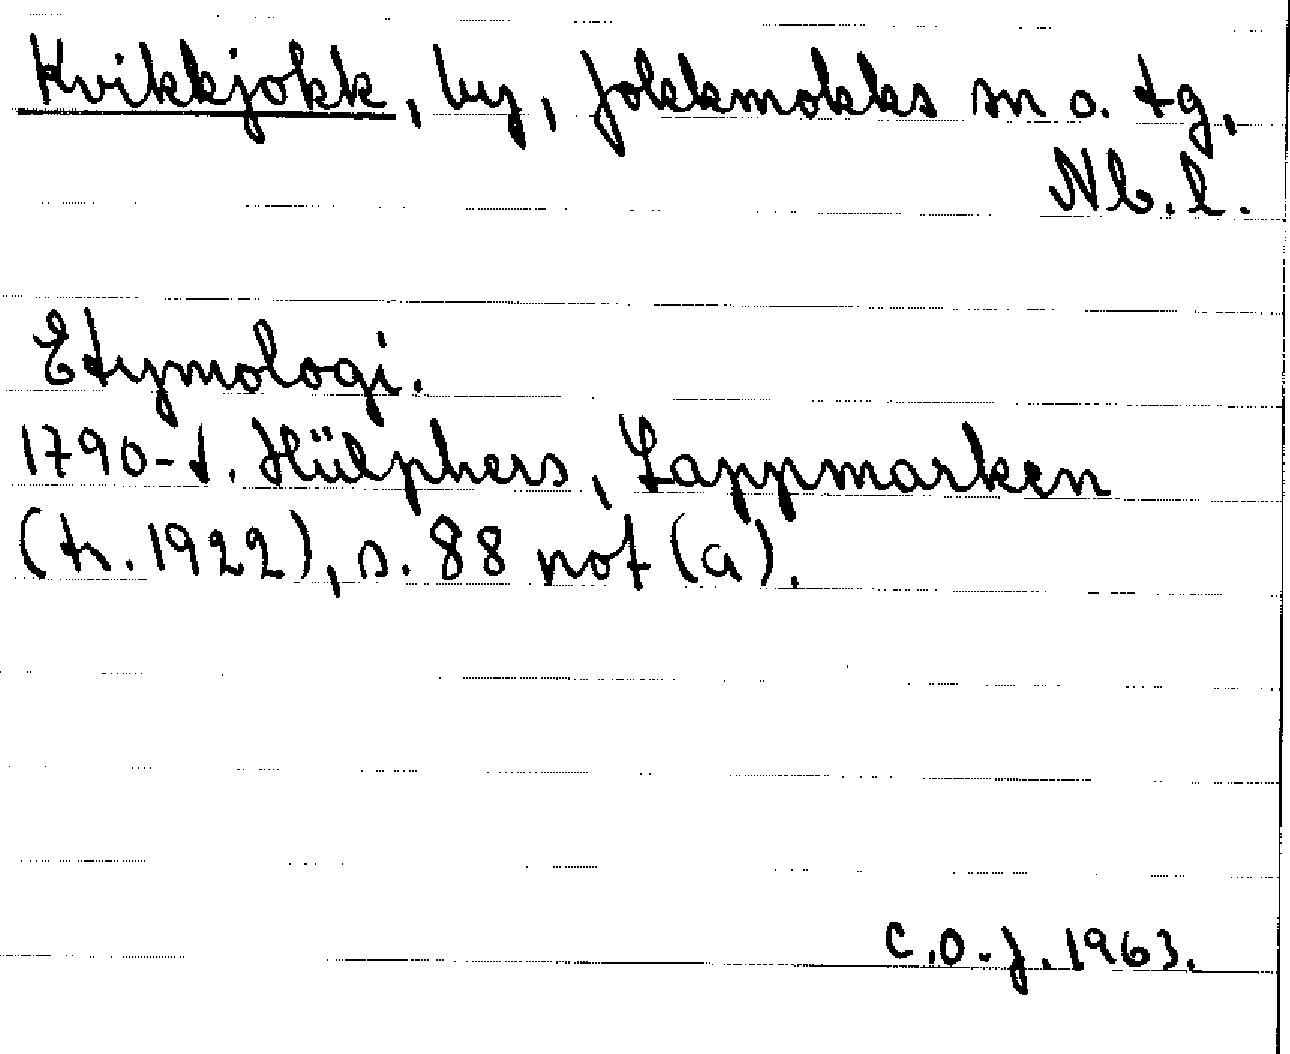 Kvikkjokk, by, Jokkmokks sn o. tg,
Nb. l.
Etymologi.
1790-t. Hülphers, Lappmarken
(tr. 1922), s. 88 not (a).
C.O.J. 1963.